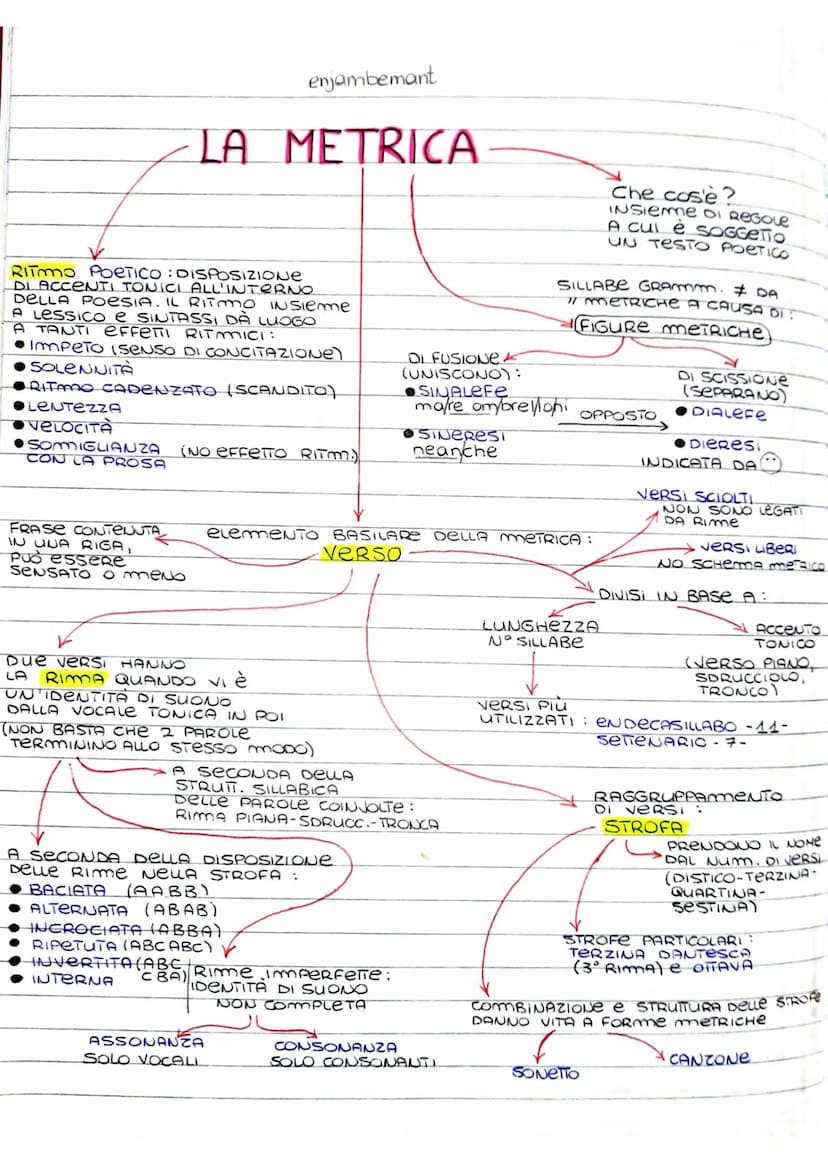 enjambemant
LA METRICA
Che cos'è?
INSIEME DI REGOLE
A CUI È SOGGETTO
UN TESTO POETICO
RITMO POETICO: DISPOSIZIONE
DI ACCENTI TONICI ALL'INTERNO
DELLA POESIA. IL RITMO INSIEME
A LESSICO E SINTASSI DÀ LUOGO
A TANTI EFFETTI RITMICI:
• IMPETO (SENSO DI CONCITAZIONE)
• SOLENNITÀ
• RITMO CADENZATO (SCANDITO)
• LENTEZZA
• VELOCITÀ
• SOMIGLIANZA (NO EFFETTO RITM.)
CON LA PROSA
SILLABE GRAMM. ≠ DA
// METRICHE A CAUSA DI:
FIGURE METRICHE
DI FUSIONE
(UNISCONO):
• SINALEFE
ma/re om/bre/lloni
• SINERESI
neanche
OPPOSTO
DI SCISSIONE
(SEPARANO)
• DIALEFE
• DIERESI
INDICATA DA ¨
ELEMENTO BASILARE DELLA METRICA:
VERSO
FRASE CONTENUTA
IN UNA RIGA,
PUÒ ESSERE
SENSATO O MENO
VERSI SCIOLTI
NON SONO LEGATI
DA RIME
VERSI LIBERI
NO SCHEMA METRICO
DIVISI IN BASE A:
LUNGHEZZA
N° SILLABE
ACCENTO
TONICO
(VERSO PIANO,
SDRUCCIOLO,
TRONCO)
VERSI PIÙ
UTILIZZATI: ENDECASILLABO -11-
SETTENARIO - 7-
DUE VERSI HANNO
LA RIMA QUANDO VI È
UN'IDENTITÀ DI SUONO
DALLA VOCALE TONICA IN POI
(NON BASTA CHE 2 PAROLE
TERMININO ALLO STESSO MODO)
A SECONDA DELLA
STRUTT. SILLABICA
DELLE PAROLE COINVOLTE:
RIMA PIANA-SDRUCC.-TRONCA
A SECONDA DELLA DISPOSIZIONE
DELLE RIME NELLA STROFA:
• BACIATA (AABB)
• ALTERNATA (ABAB)
• INCROCIATA (ABBA)
• RIPETUTA (ABCABC)
• INVERTITA (ABC
CBA)
• INTERNA
RIME IMPERFETTE:
IDENTITÀ DI SUONO
NON COMPLETA
ASSONANZA
SOLO VOCALI
CONSONANZA
SOLO CONSONANTI
RAGGRUPPAMENTO
DI VERSI:
STROFA
PRENDONO IL NOME
DAL NUM. DI VERSI
(DISTICO-TERZINA-
QUARTINA-
SESTINA)
STROFE PARTICOLARI:
TERZINA DANTESCA
(3° RIMA) E OTTAVA
COMBINAZIONE E STRUTTURA DELLE STROFE
DANNO VITA A FORME METRICHE
SONETTO
CANZONE